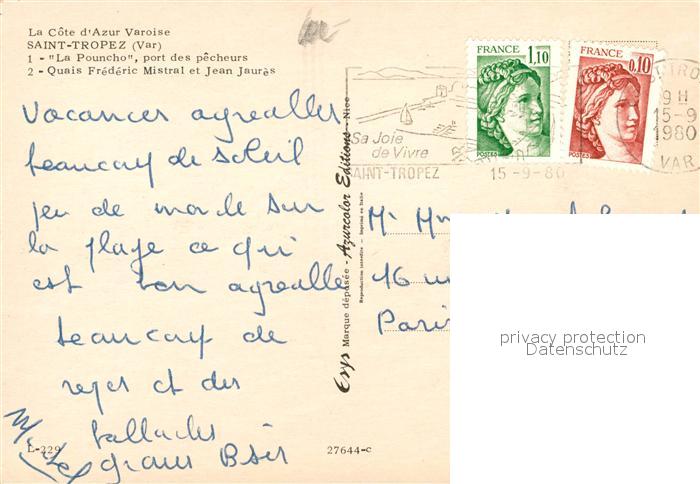 La Côte d'Azur Varoise
SAINT-TROPEZ (Var)
1 - "La Pouncho", port des pêcheurs
2 - Quais Frédéric Mistral et Jean Jaurès
Vacances agreables
beaucoup de soleil
peu de monde sur
la plage ce qui
est bon agreable
beaucoup de
repos et des
ballades
grans Bsis
L-229
27644-c
Esys Marque déposée - Azurcolor Editions - Nice
Reproduction interdite - Imprimé en Italie
Sa Joie
de Vivre
SAINT-TROPEZ
15-9-80
FRANCE 1,10
POSTES
FRANCE 0,10
POSTES
9 H
15-9
1980
VAR
Mr Mme
16
Paris
privacy protection
Datenschutz